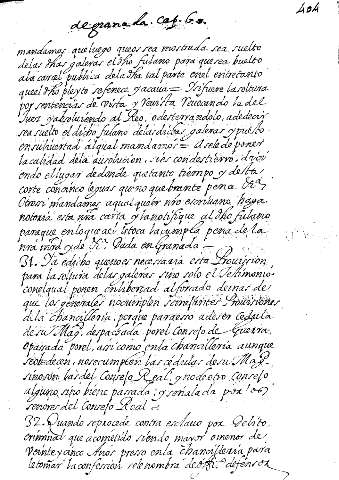 de granada. cap. 6.
404
mandamos que luego que os sea mostrada sea suelto
de las dhas galeras el dho fulano para que sea buelto
a la carcel publica de la dha tal parte en el entretanto
que el dho pleyto se fenece y acaua = I si fuere la soltura
por sentencias de vista y reuista, reuocando la del
Juez y absoluiendo al Reo, o desterrandolo, a de decir
sea suelto el dicho fulano de las dichas galeras y puesto
en su libertad al qual mandamos = I se le de poner
la calidad de la absolucion. I si es con destierro, diçi
endo el lugar de donde y quanto tiempo y desta
corte con cinco leguas que no quebrante pena &c
Otrosi mandamos a qualquier nro escriuano haga
notoria esta nra carta y la notifique al dho fulano
para que en lo que a el toca la cumpla pena de la
nra mrd y de &c. Dada en Granada =
31. I e dicho que no es necesaria esta Prouission
para la soltura de las galeras sino solo el Testimonio
con el qual ponen en libertad al forçado demas de
que los generales no cumplen semejantes Prouisiones
de la chancilleria, porque para esso a de ser cedula
de su Magd. despachada por el Consejo de Guerra,
o passada por el, assi como en la chancilleria aunque
se obedecen, no se cumplen las cedulas de su Magd
sino son las del Consejo Real, y no de otro Consejo
alguno, sino biene passada, y señalada por los
señores del Consejo Real =
32. Quando se procede contra esclauo por delito
criminal que a cometido siendo mayor o menor de
veinte y cinco Años preso en la chancilleria para
le tomar la confession se le nombra de offo. defensor